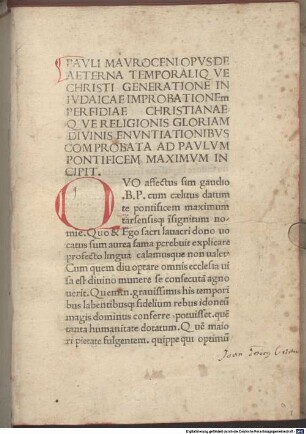 PAVLI MAVROCENI OPVS DE
AETERNA TEMPORALIQ VE
CHRISTI GENERATIONE IN
IVDAICAE IMPROBATIONEm
PERFIDIAE CHRISTIANAE
Q VE RELIGIONIS GLORIAM
DIVINIS ENVNTIATIONIBVS
COMPROBATA AD PAVLVM
PONTIFICEM MAXIMVM IN
CIPIT.
QVO affectus sim gaudio
.B.P. cum cælitus datum
te pontificem maximum
tārsensisq; isignitum no-
mie. Quo & Ego sacri lauacri dono uo
catus sum aurea fama pcrebuit explicare
profecto lingua calamusque non ualet
Cum quem diu optare omnis ecclesia ui
sa est diuino munere se consecutā agno-
uerit. Quem n. grauissimis his tempori
bus labentibusq; fidelium rebus idoneū
magis dominus conferre potuisset. quē
tanta humanitate dotatum. Q uē maio
ri pietate fulgentem. quippe qui optimū